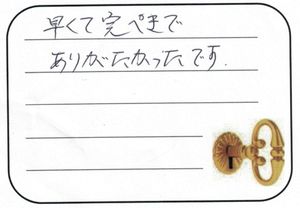 早くて完ぺきで
ありがたかったです.